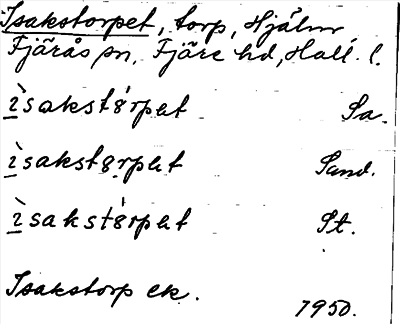 Isakstorpet, torp, Hjälm
Fjärås sn, Fjäre hd, Hall. l.
ìsakstorpet Sa.
ìsakstorpet Sand.
ìsakstorpet St.
Isakstorp ek.
1950.